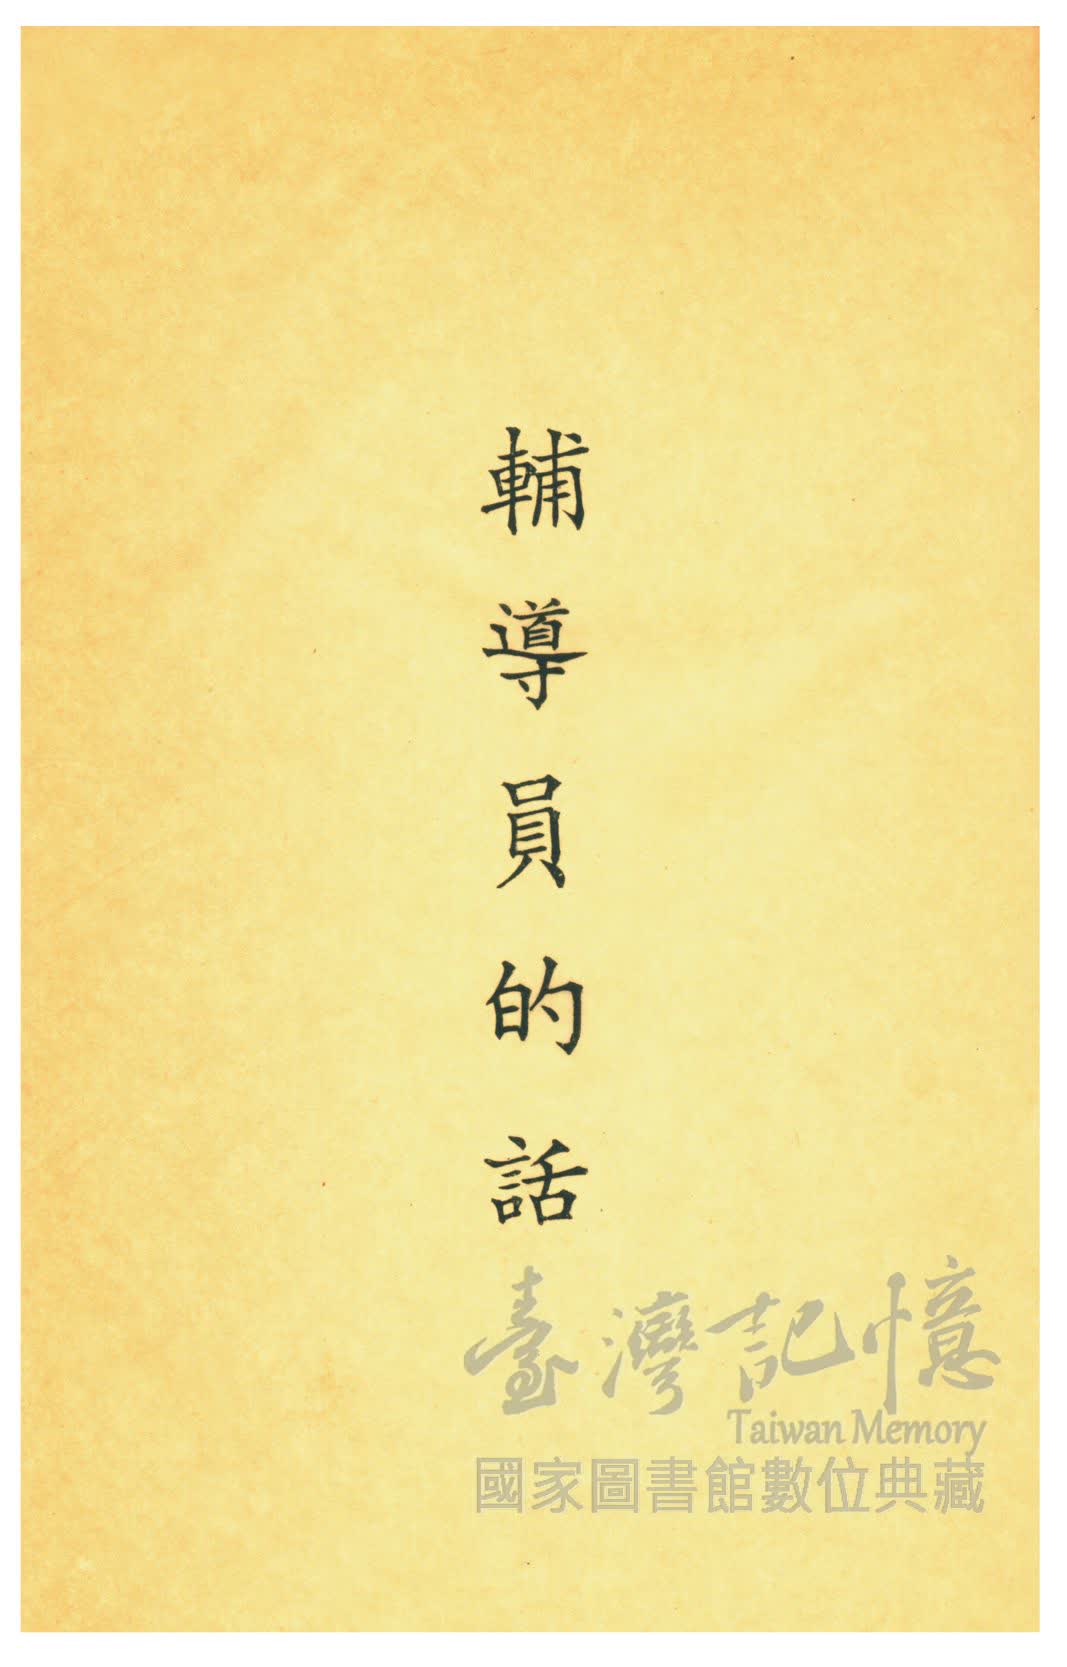 輔導員的話
臺灣記憶
Taiwan Memory
國家圖書館數位典藏